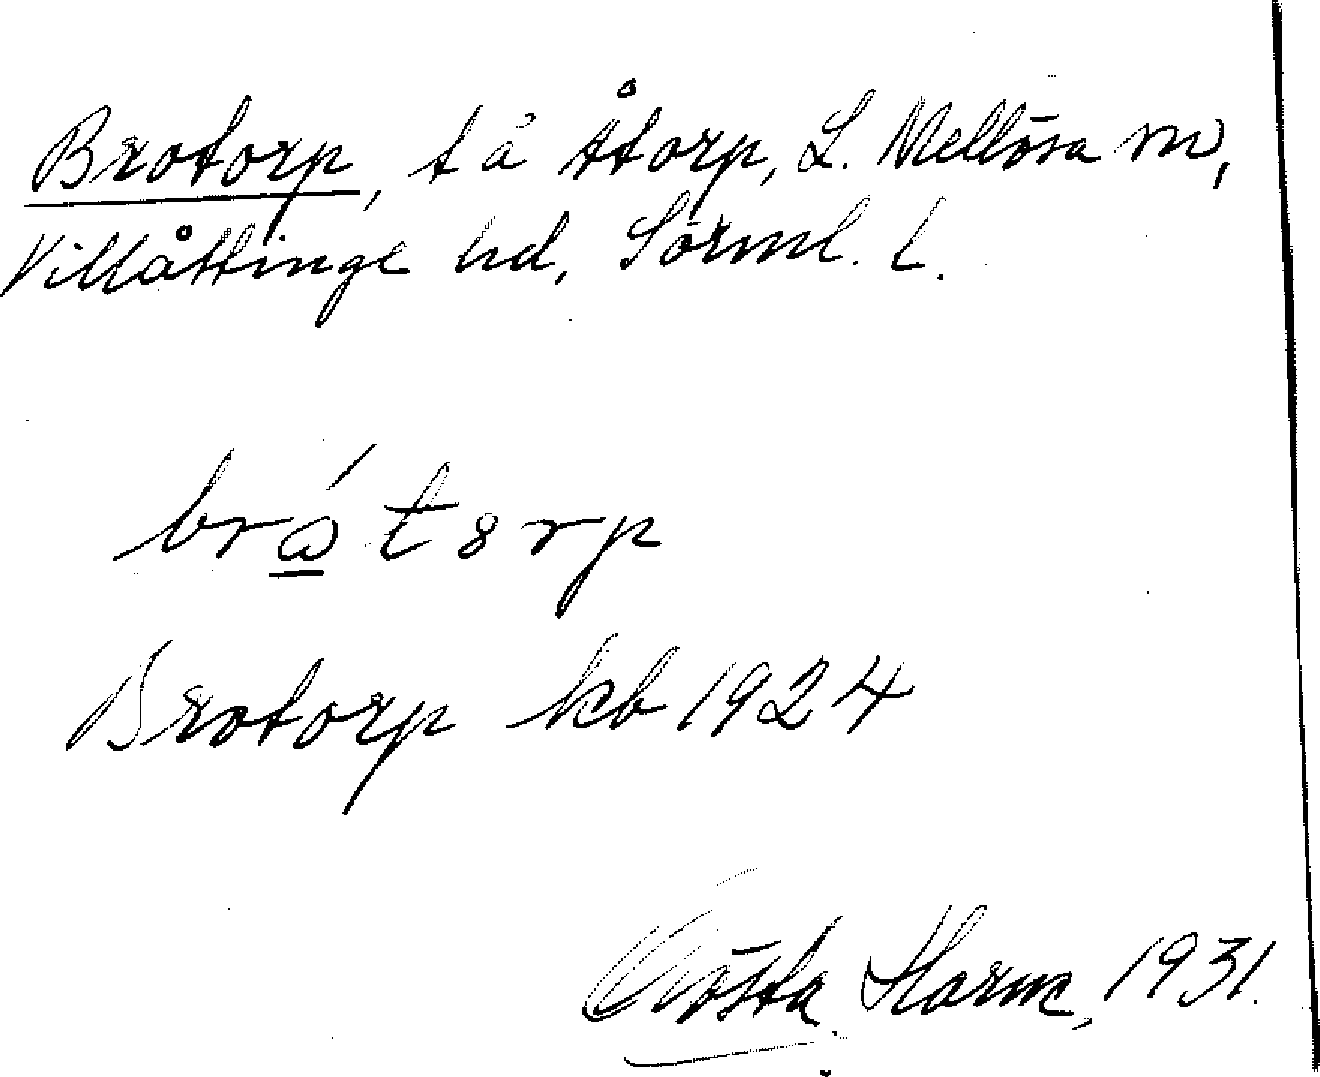 Brotorp, t å Åtorp, L. Mellösa sn,
Villåttinge hd, Sörml. l.
brótorp
Brotorp kb 1924
Gösta Storm, 1931.